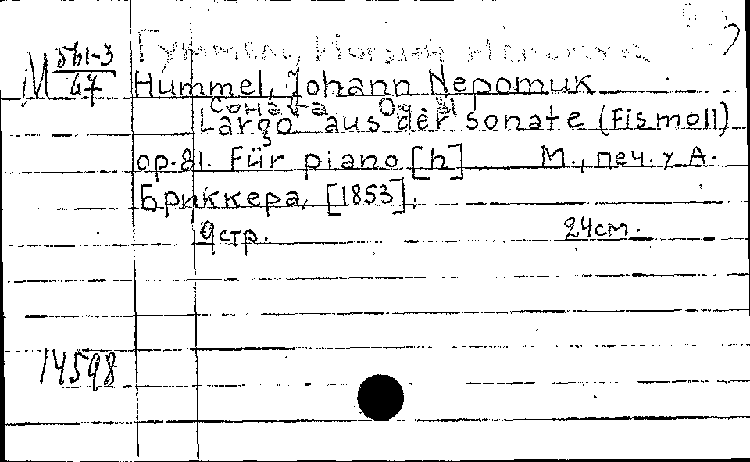 Гуммель, Иоганн Непомук
М 5ы-3/67
Hummel, Johann Nepomuk
Соната Ор. 81
Largo aus der Sonate (Fis moll)
op. 81. Für piano [h] М., печ. у А.
Бриккера, [1853].
9 стр. 24 см.
14598